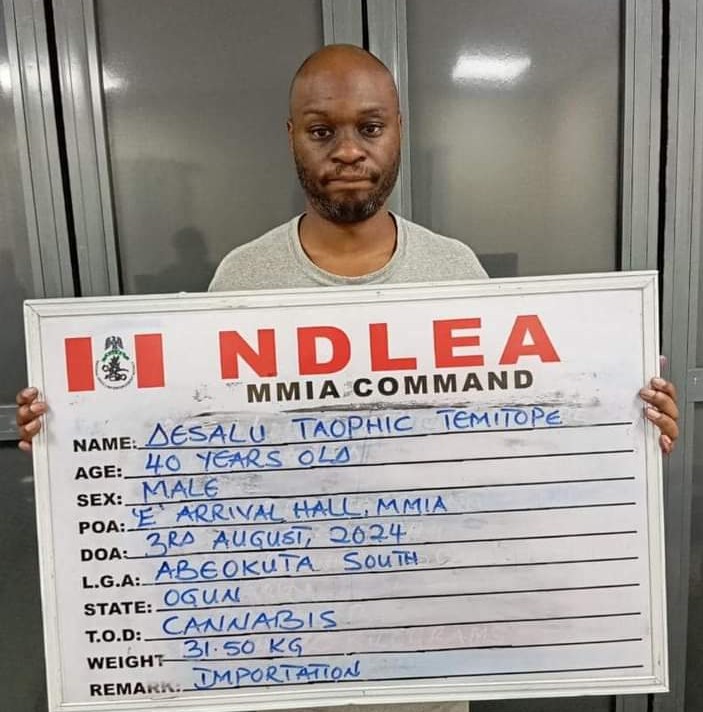 NDLEA
MMIA COMMAND
NAME: DESALU TAOPHIC TEMITOPE
AGE: 40 YEARS OLD
SEX: MALE
POA: 'E' ARRIVAL HALL, MMIA
DOA: 3RD AUGUST, 2024
L.G.A: ABEOKUTA SOUTH
STATE: OGUN
T.O.D: CANNABIS
WEIGHT 31.50 KG
REMARK: IMPORTATION